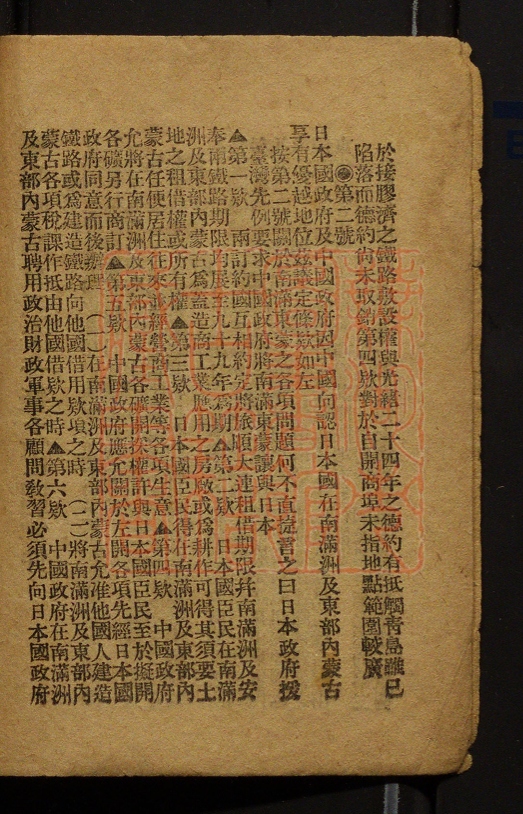 於接膠濟之鐵路敷設權與光緖二十四年之德約有抵觸靑島雖已
陷落而德約尙未取銷第四欵對於自開商埠未指地點範圍較廣
◉第二號
日本國政府及中國政府因中國向認日本國在南滿洲及東部內蒙古
享有優越地位玆議定條欵如左
按第二號關於南滿東蒙之各項問題何不直捷言之曰日本政府援
臺灣先例要求中國政府將南滿東蒙讓與日本
▲第一欵　兩訂約國互相約定將旅順大連租借期限幷南滿洲及安
奉兩鐵路期限均展至九十九年爲期▲第二欵　日本國臣民在南滿
洲及東部內蒙古爲蓋造商工業應用之房廠或爲耕作可得其須要土
地之租借權或所有權▲第三欵　日本國臣民得在南滿洲及東部內
蒙古任便居住往來並經營商工業等各項生意▲第四欵　中國政府
允將在南滿洲及東部內蒙古各礦開採權許與日本國臣民至於擬開
各礦另行商訂▲第五欵　中國政府應允關於左開各項先經日本國
政府同意而後辦理　（一）在南滿洲及東部內蒙古允准他國人建造
鐵路或爲建造鐵路向他國借用欵項之時　（二）將南滿洲及東部內
蒙古各項稅課作抵由他國借欵之時▲第六欵　中國政府在南滿洲
及東部內蒙古聘用政治財政軍事各顧問敎習必須先向日本國政府